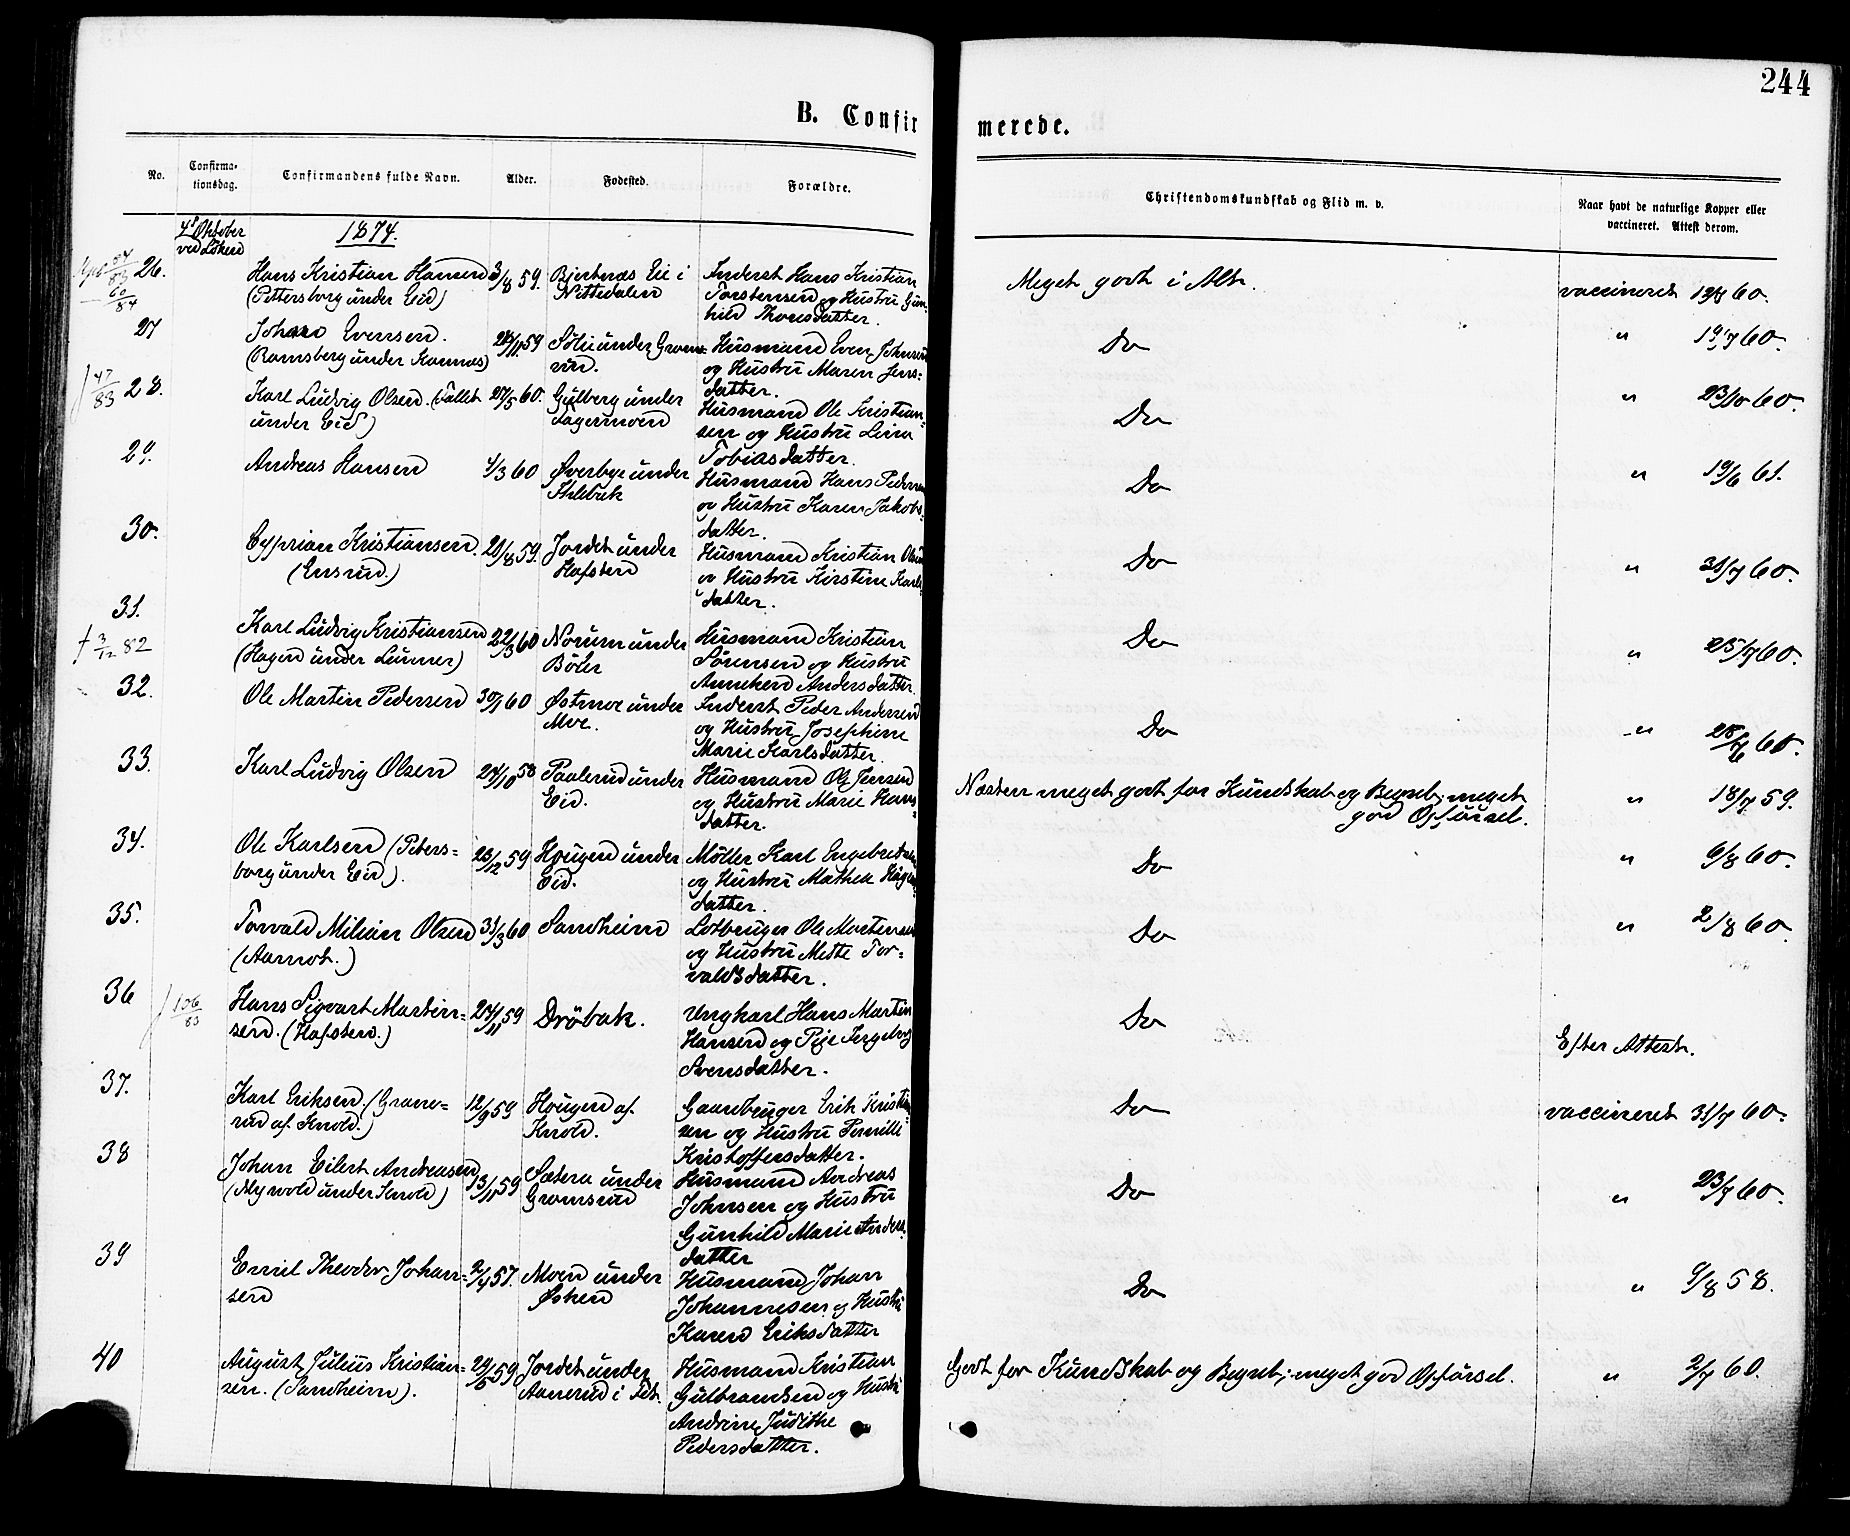 244
B. Confir
merede.
No.
Confirma-
tionsdag.
Confirmandens fulde Navn.
Alder.
Fødested.
Forældre.
Christendomskundskab og Flid m. v.
Naar havt de naturlige Kopper eller
vaccineret. Attest derom.
4de Oktober
ved Løken
1874.
26.
Hans Kristian Hansen
(Pettersborg under Eid)
3/8 59.
Bjertnæs Eie i
Nittedalen
Inderst Hans Kristian
Torstensen og Hustru Gun-
hild Thorsdatter.
Meget godt i Alt.
vaccineret 12/8 60.
27
Johan Evensen.
(Ramsberg under Kamnæs)
28/11 59
Sølie under Groms-
rud.
Husmand Even Johnsen
og Hustru Maren Jens-
datter.
Do
" 19/7 60.
47/83 28.
Karl Ludvig Olsen. (Tallet
under Eid)
27/5 60.
Gulberg under
Fagermoen
Husmand Ole Kristian-
sen og Hustru Lina
Tobiasdatter.
Do
" 23/10 60.
29.
Andreas Hansen
4/3 60
Øverbye under
Ihlebæk
Husmand Hans Pedersen
og Hustru Karen Jakobs-
datter.
Do
" 19/6 61.
30.
Cyprian Kristiansen.
(Ensrud.)
21/8 59.
Jordet under
Hafsten
Husmand Kristian Olsen
og Hustru Kirstine Karls-
datter.
Do
" 31/7 60.
31.
† 3/12 82
Karl Ludvig Kristiansen
(Hagen under Lunner)
22/3 60
Norum under
Böler
Husmand Kristian
Sörensen og Hustru
Anneken Andersdatter.
Do
" 25/7 60.
32.
Ole Martin Pedersen
30/1 60
Østmoe under
Moe.
Inderst Peder Andersen
og Hustru Josephine
Marie Karlsdatter.
Do
" 28/6 60.
33.
Karl Ludvig Olsen
24/10 58
Paalerud under
Eid.
Husmand Ole Jensen
og Hustru Marie Hans-
datter.
Næsten meget godt for Kundskab og Begreb; meget
god Opførsel.
" 18/7 59.
34.
Ole Karlsen (Peters-
borg under Eid).
23/12 59
Hougen under
Eid.
Møller Karl Engebretsen
og Hustru Mathea
datter.
Do
" 6/8 60.
35.
Torvald Milian Olsen
(Aarnot.)
31/3 60
Sandheim
Lotbruger Ole Mortensen
og Hustru Mette Tor-
valdsdatter.
Do
" 2/8 60.
36
106/83
Hans Sigvart Martin-
sen. (Hafsten.)
24/11 59
Dröbak.
Ungkarl Hans Martin
Hansen og Pige Ingeborg
Svensdatter.
Do
Efter Attest.
37.
Karl Eriksen. (Grane-
rud af Knold.)
12/9 59
Hougen af
Knold.
Gaardbruger Erik Kristian-
sen og Hustru Pernille
Kristoffersdatter.
Do
vaccineret 31/7 60.
38
Johan Eilert Andreasen
(Myrvold under Knold)
13/11 59
Sætera under
Gromsrud
Husmand Andreas
Johnsen og Hustru
Gunhild Marie Anders-
datter
Do
" 23/7 60.
39
Emil Theodor Johan-
sen
2/4 57.
Moen under
Øsken
Husmand Johan
Johannesen og Hustru
Karen Eriksdatter
Do
" 9/8 58.
40
August Julius Kristian-
sen. (Sandheim).
29/5 59
Jordet under
Aanerud i Fet.
Husmand Kristian
Gulbrandsen og Hustru
Andrine Judithe
Pedersdatter.
Godt for Kundskab og Begreb; meget god Opførsel.
" 2/7 60.